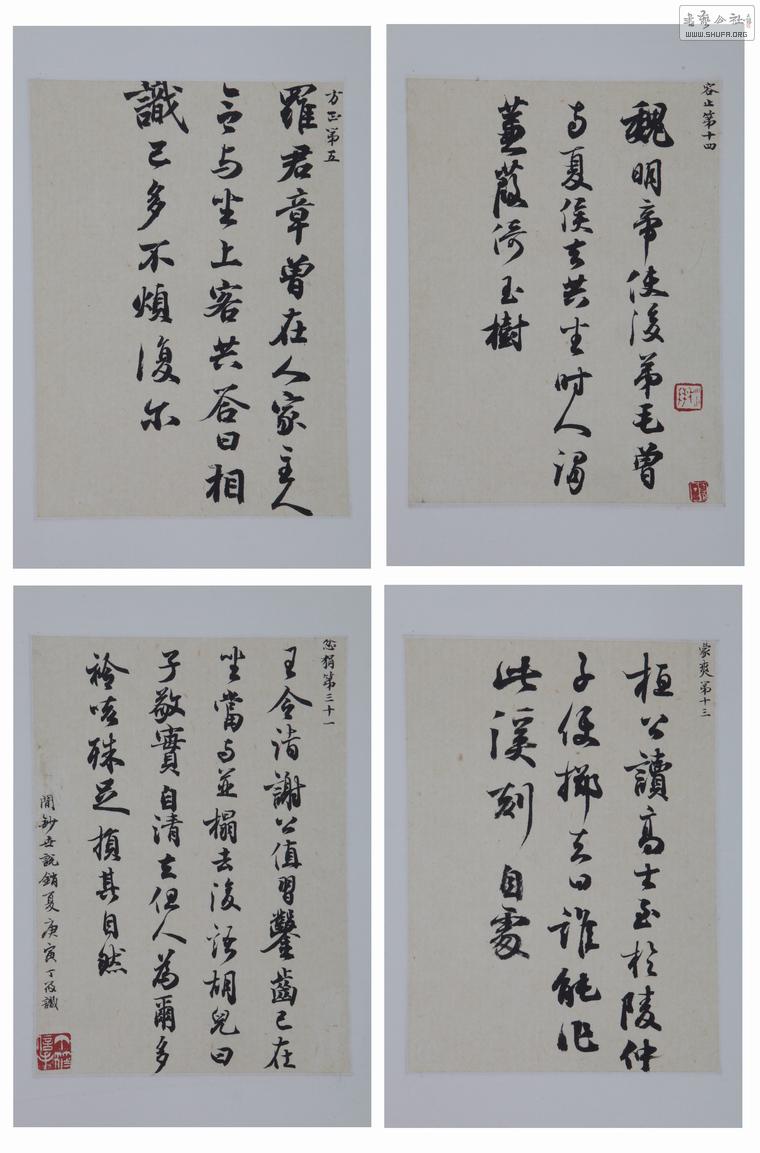 书艺公社
WWW.SHUFA.ORG
容止第十四
魏明帝使後弟毛曾
与夏侯玄共坐时人谓
蒹葭倚玉樹
方正第五
羅君章曾在人家主人
令与坐上客共答曰相
識已多不煩復尔
豪爽第十三
桓公讀高士至於陵仲
子便擲去曰誰能作
此溪刻自處
忿狷第三十一
王令詣謝公值習鑿齒已在
坐當与並榻去後語胡兒曰
子敬實自清立但人為爾多
衿咳殊足損其自然
閒鈔世說銷夏庚寅丁筱識